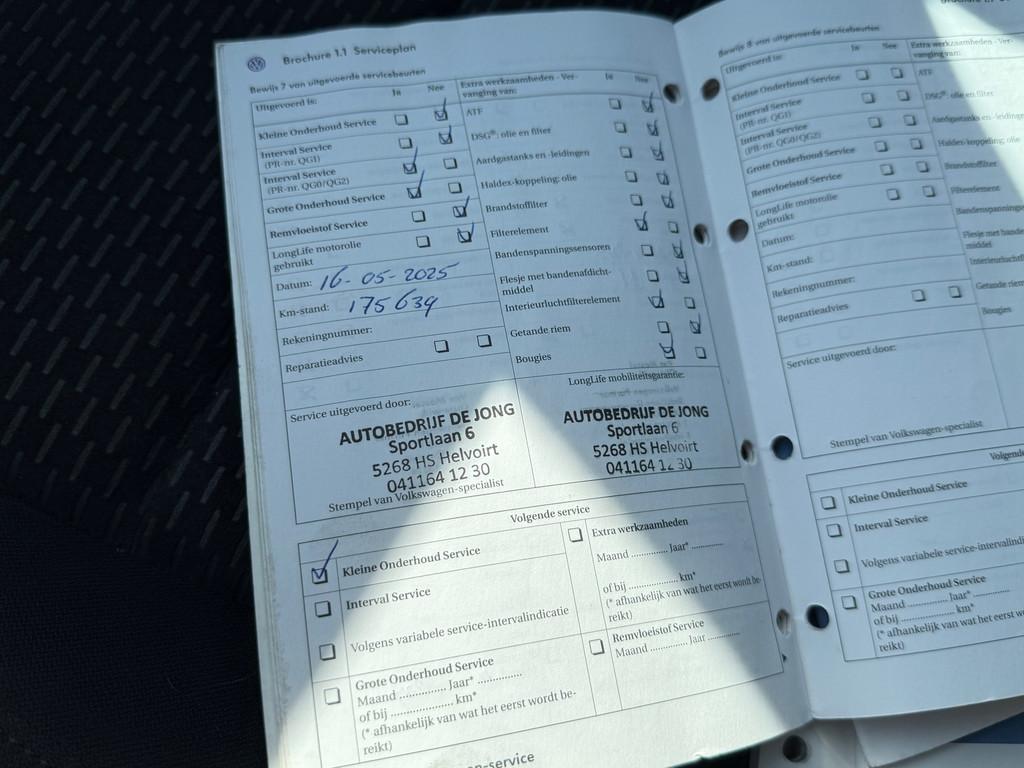 Brochure 1.1 Serviceplan
Bewijs 7 van uitgevoerde servicebeurten
Uitgevoerd is: Ja Nee
Kleine Onderhoud Service
Interval Service
(PR-nr. QG1)
Interval Service
(PR-nr. QG0/QG2)
Grote Onderhoud Service
Remvloeistof Service
LongLife motorolie
gebruikt
Datum: 16-05-2025
Km-stand: 175639
Rekeningnummer:
Reparatieadvies
Extra werkzaamheden - Ver-
vanging van: Ja Nee
ATF
DSG®: olie en filter
Aardgastanks en -leidingen
Haldex-koppeling: olie
Brandstoffilter
Filterelement
Bandenspanningssensoren
Flesje met bandenafdicht-
middel
Interieurluchtfilterelement
Getande riem
Bougies
Service uitgevoerd door:
AUTOBEDRIJF DE JONG
Sportlaan 6
5268 HS Helvoirt
041164 12 30
Stempel van Volkswagen-specialist
LongLife mobiliteitsgarantie:
AUTOBEDRIJF DE JONG
Sportlaan 6
5268 HS Helvoirt
041164 12 30
Volgende service
Kleine Onderhoud Service
Interval Service
Volgens variabele service-intervalindicatie
Grote Onderhoud Service
Maand .............. Jaar* .............
of bij .................... km*
(* afhankelijk van wat het eerst wordt be-
reikt)
Extra werkzaamheden
Maand ............. Jaar* .............
of bij ................. km*
(* afhankelijk van wat het eerst wordt be-
reikt)
Remvloeistof Service
Maand ............. Jaar ...........
-service
Bewijs 8 van uitgevoerde servicebeurten
Uitgevoerd is: Ja Nee
Kleine Onderhoud Service
Interval Service
(PR-nr. QG1)
Interval Service
(PR-nr. QG0/QG2)
Grote Onderhoud Service
Remvloeistof Service
LongLife motorolie
gebruikt
Datum:
Km-stand:
Rekeningnummer:
Reparatieadvies
Extra werkzaamheden - Ver-
vanging van:
ATF
DSG®: olie en filter
Aardgastanks en -leidingen
Haldex-koppeling: olie
Brandstoffilter
Filterelement
Bandenspannings
Flesje met bande
middel
Interieurluchtfi
Getande riem
Bougies
Service uitgevoerd door:
Stempel van Volkswagen-specialist
Volgende
Kleine Onderhoud Service
Interval Service
Volgens variabele service-intervalindi
Grote Onderhoud Service
Maand ............ Jaar* ............
of bij .................. km*
(* afhankelijk van wat het eerst wo
reikt)